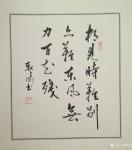 相見時難別
亦難東風無
力百花殘